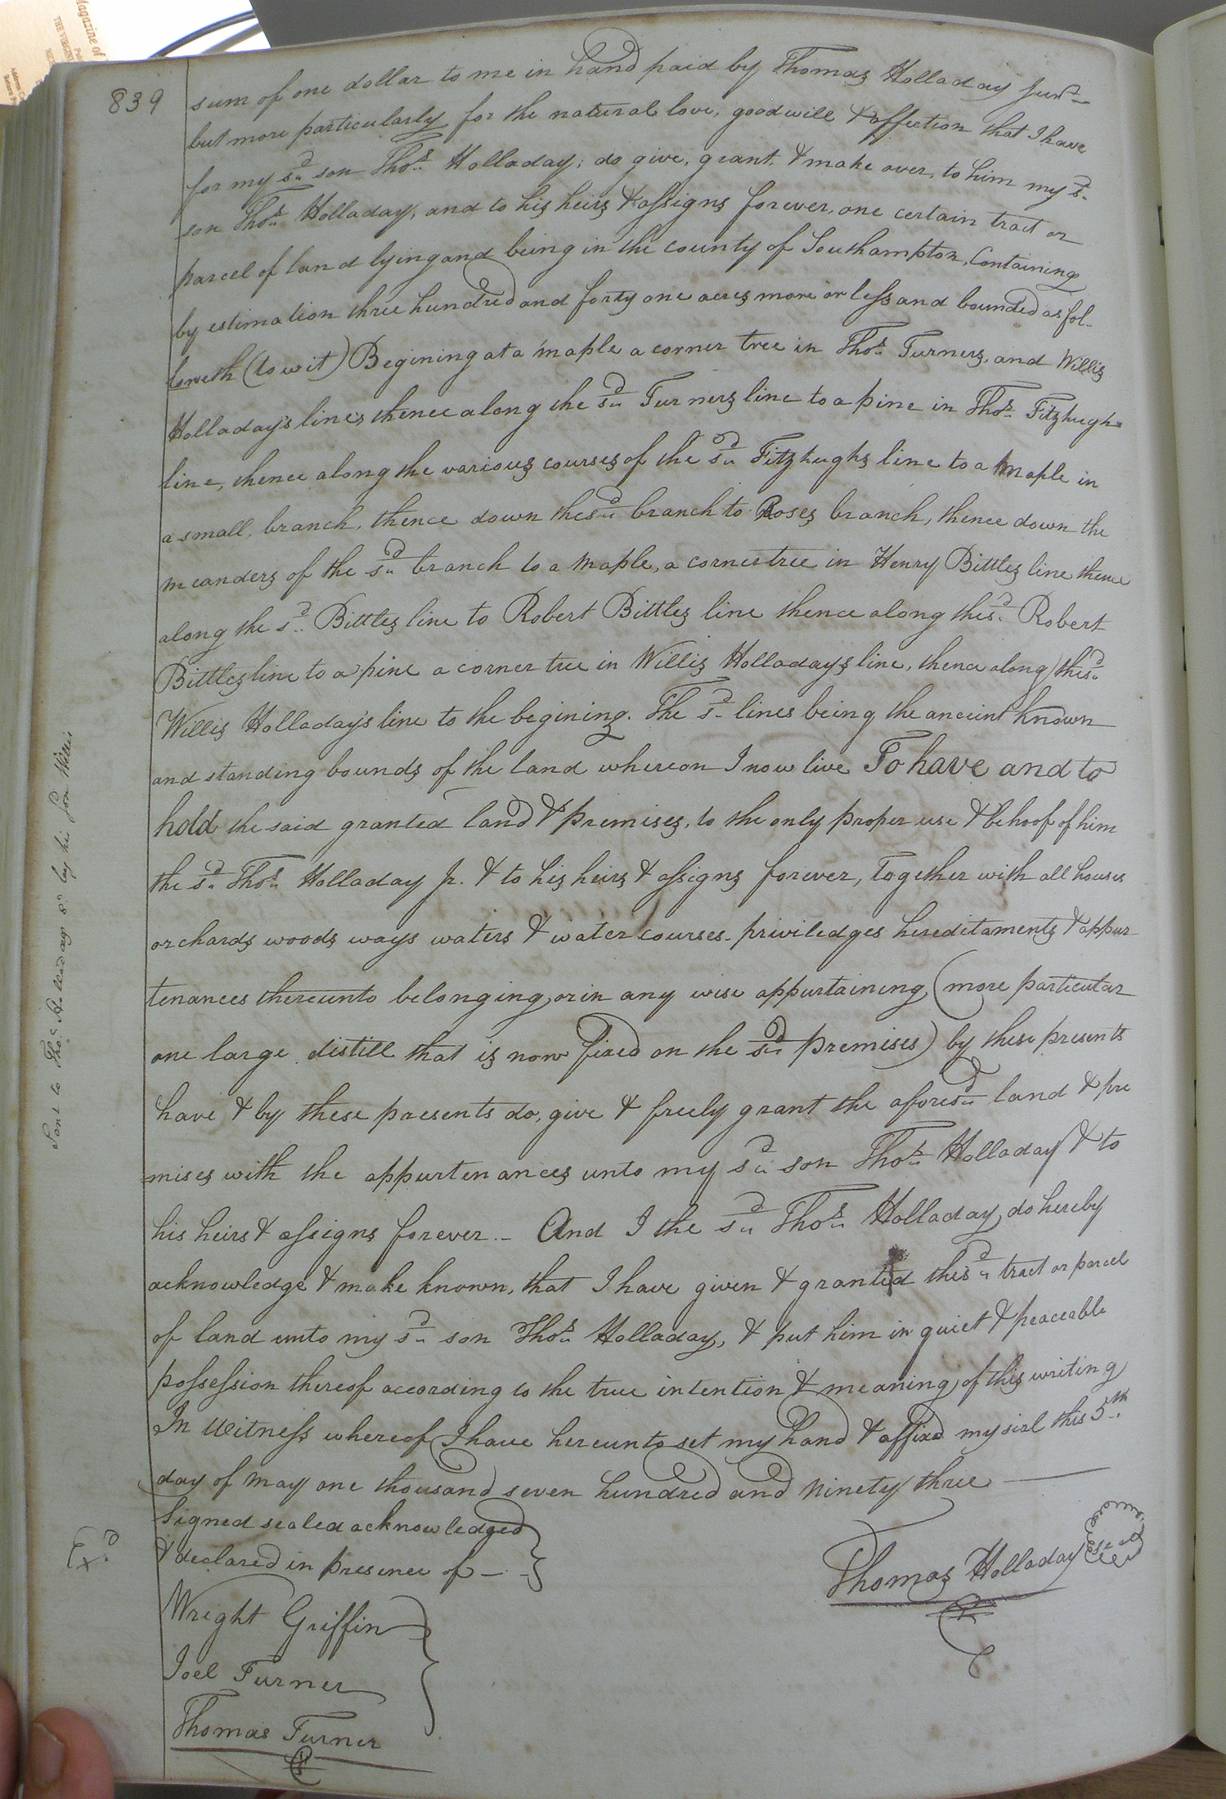 839
sum of one dollar to me in hand paid by Thomas Holladay Junr
but more particularly for the natural love, good will & affection that I have
for my sd son Thos. Holladay; do give, grant, & make over, to him my sd.
son Thos. Holladay, and to his heirs & assigns forever, one certain tract or
parcel of land lying and being in the county of Southampton, Containing
by estimation three hundred and forty one acres more or less and bounded as fol-
loweth (to wit) Begining at a maple a corner tree in Thos. Turners, and Willis
Holladay's lines thence along the sd. Turners line to a pine in Thos. Fitzhughs
line, thence along the various courses of the sd. Fitzhughs line to a Maple in
a small branch, thence down the sd. branch to Roses branch, thence down the
meanders of the sd. branch to a maple, a corner tree in Henry Bittles line thence
along the sd. Bittles line to Robert Bittles line thence along the sd. Robert
Bittles line to a pine a corner tree in Willis Holladays line, thence along the sd.
Willis Holladay's line to the begining. The sd. lines being the ancient known
and standing bounds of the land whereon I now live To have and to
hold the said granted land & premises, to the only proper use & behoof of him
the sd. Thos. Holladay Jr. & to his heirs & assigns forever, Together with all houses
orchards woods ways waters & water courses priviledges hereditaments & appur-
tenances thereunto belonging or in any wise appurtaining (more particular
one large distill that is now fixed on the sd. premises) by these presents
have & by these presents do, give & freely grant the aforesd. land & pre
mises with the appurtenances unto my sd. son Thos. Holladay & to
his heirs & assigns forever.- And I the sd. Thos. Holladay, do hereby
acknowledge & make known, that I have given & granted the sd. tract or parcel
of land unto my sd. son Thos. Holladay, & put him in quiet & peaceable
possession thereof according to the true intention & meaning of this writing
In Witness whereof I have hereunto set my hand & affixed my seal this 5th.
day of May one thousand seven hundred and Ninety three
Signed sealed acknowledged
& declared in presence of
Thomas Holladay seal
Wright Griffin
Joel Turner
Thomas Turner
Exd.
Sent to Thos. Holladay Sr. by his Son Willis
Magazine of